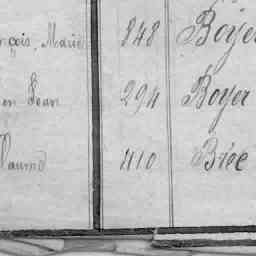 nçois, Marie 848 Boyer
en Jean 294 Boyer
410 Briee